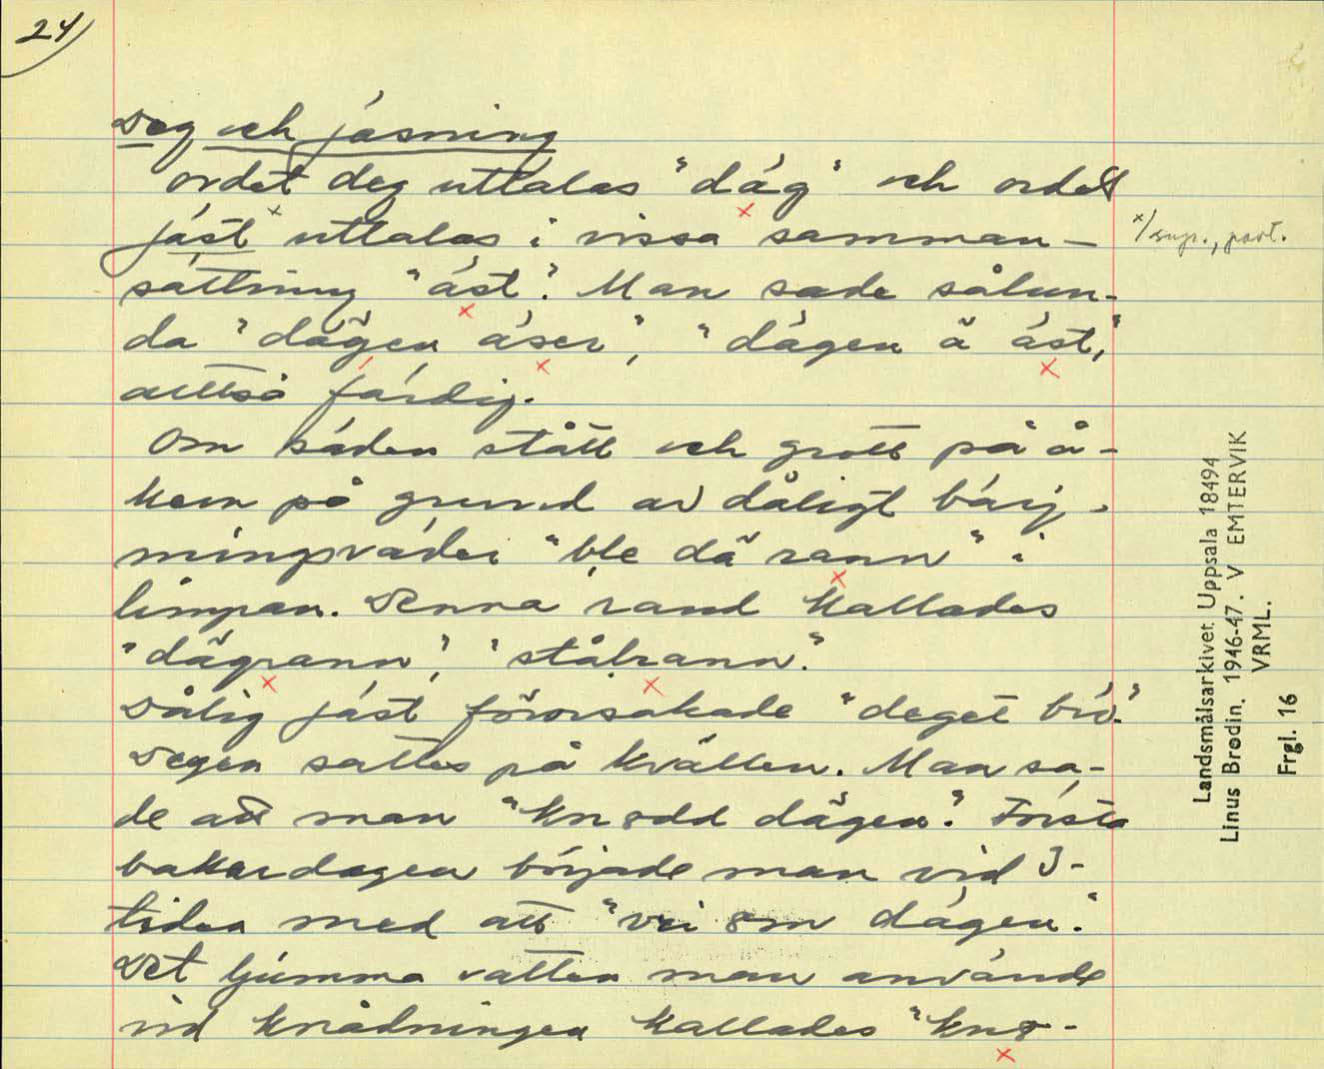 24)
Deg och jäsning
ordet deg uttalas "däg" och ordet
jäst x uttalas i vissa samman-
x/ sup., part.
sättning "äst". Man sade sålun-
da "dägen äser", "dägen ä äst,"
alltså färdig.
Om säden stått och grott på å-
kern på grund av dåligt bärg-
ningsväder "ble dä rann" i
limpan. Denna rand kallades
"dägrann", "stålrann".
Dålig jäst förorsakade "deget brö".
Degen sattes på kvällen. Man sa-
de att man "knodd dägen". Första
bakardagen började man vid 3-
tiden med att "vri om dägen".
Det ljumma vatten man använde
vid knådningen kallades "kno-
Landsmålsarkivet Uppsala 18494
Linus Brodin. 1946-47. V EMTERVIK
VRML.
Frgl. 16